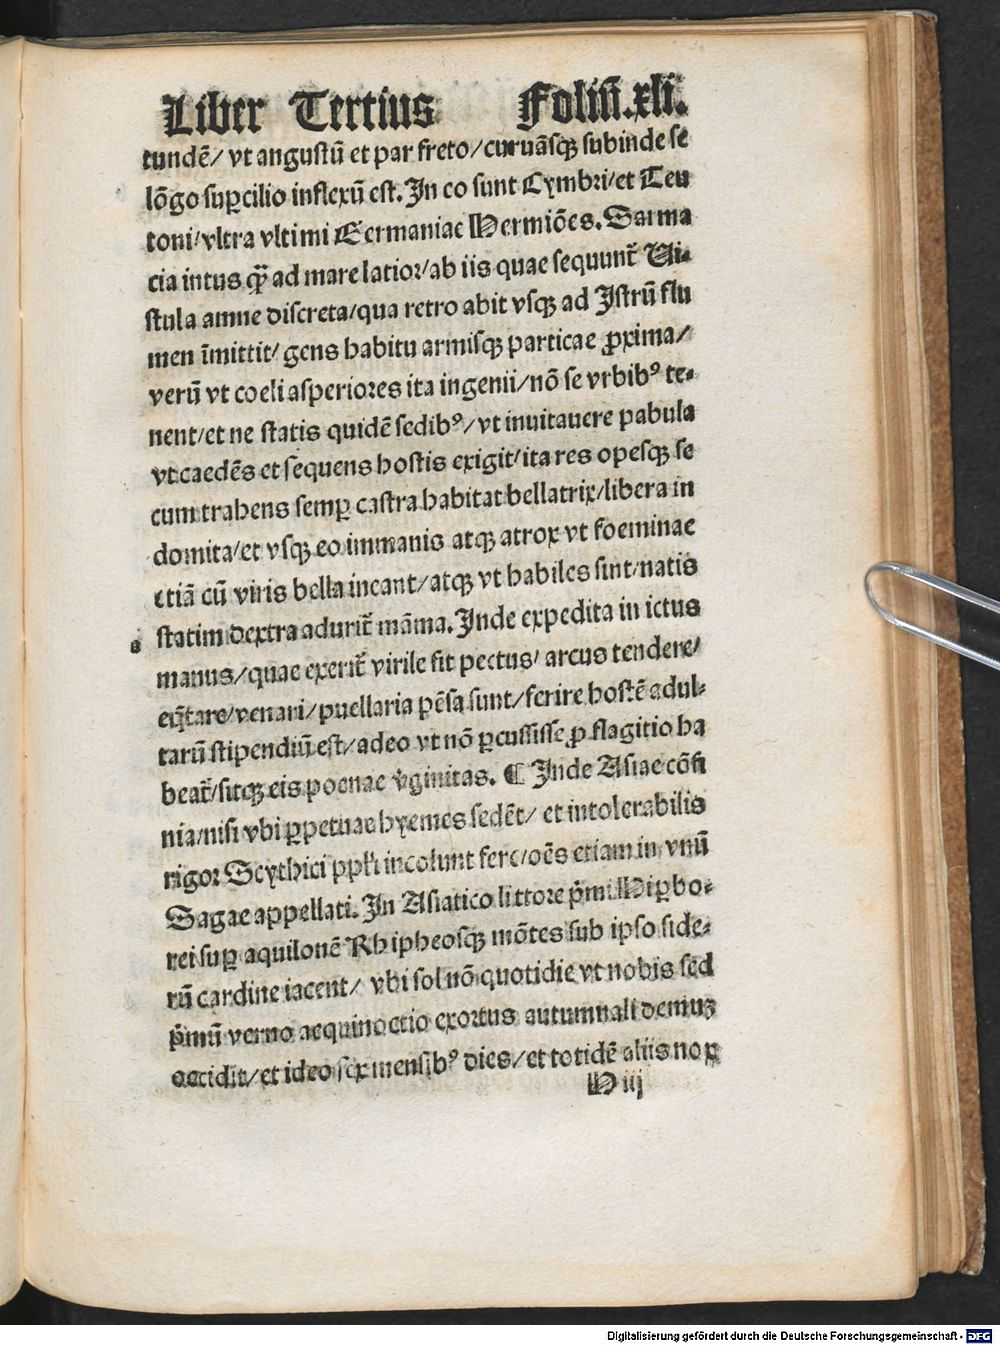 Liber Tertius Foliũ.xli.
tundẽ/ vt angustũ et par freto/curuãsqꝫ subinde se
lõgo suꝑcilio inflexũ est. In eo sunt Cymbri/et Teu
toni/vltra vltimi Germaniae Hermiões. Sarma
cia intus qȝ̃ ad mare latior/ab iis quae sequunt᷑ Vi-
stula amne discreta/qua retro abit vsqꝫ ad Istrũ flu
men ĩmittit/ gens habitu armisqꝫ particae ꝓxima/
verũ vt coeli asperiores ita ingenii/nõ se vrbibꝰ te-
nent/et ne statis quidẽ sedibꝰ/vt inuitauere pabula
vt caedẽs et sequens hostis exigit/ita res opesqꝫ se
cum trahens semꝑ castra habitat bellatrix/libera in
domita/et vsqꝫ eo immanis atqꝫ atrox vt foeminae
etiã cũ viris bella ineant/atqꝫ vt habiles sint/natis
statim dextra adurit᷑ mãma. Inde expedita in ictus
manus/quae exerit᷑ virile fit pectus/ arcus tendere/
eq̃tare/venari/puellaria pẽsa sunt/ferire hostẽ adul-
tarũ stipendiũ est/adeo vt nõ ꝑcussisse ꝓ flagitio ha
beat᷑/sitqꝫ eis poenae v̓ginitas. ¶ Inde Asiae cõfi
nia/nisi vbi ꝑpetuae hyemes sedẽt/ et intolerabilis
rigor Scythici ppl̓i incolunt fere/oẽs etiam in vnũ
Sagae appellati. In Asiatico littore p̓mi Hiꝑbo-
rei suꝑ aquilonẽ Rhipheosqꝫ mõtes sub ipso side-
rũ cardine iacent/ vbi sol nõ quotidie vt nobis sed
p̓mũ verno aequinoctio exortus autumnali demuꝫ
occidit/et ideo sex mensibꝰ dies/et totidẽ aliis nox
H iij
a
Digitalisierung gefördert durch die Deutsche Forschungsgemeinschaft - DFG